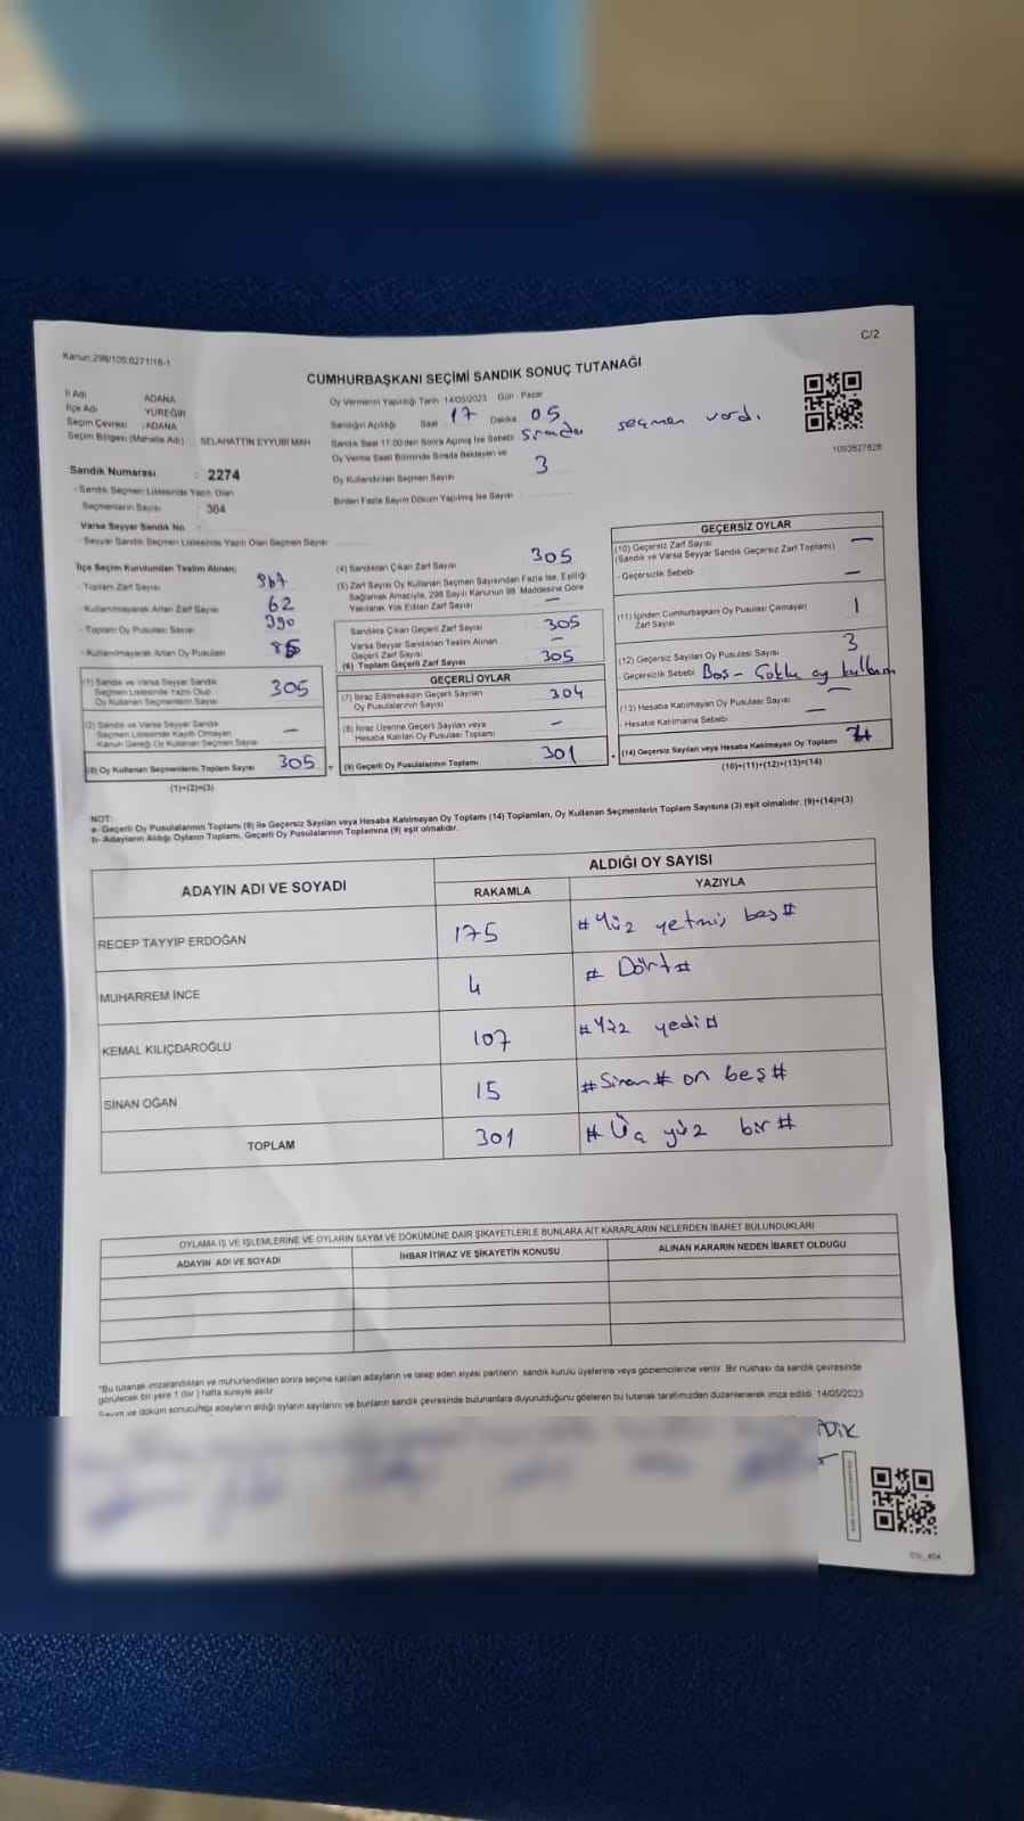 Kanun:298/105;6271/16-1
C/2
CUMHURBAŞKANI SEÇİMİ SANDIK SONUÇ TUTANAĞI
İl Adı ADANA
İlçe Adı YÜREĞİR
Seçim Çevresi :ADANA
Seçim Bölgesi (Mahalle Adı) : SELAHATTİN EYYUBİ MAH
Oy Vermenin Yapıldığı Tarih 14/05/2023 Gün : Pazar
Sandığın Açıldığı Saat 17 Dakika 05
Sandık Saat 17:00'den Sonra Açılmış İse Sebebi Sırada seçmen vardı.
Oy Verme Saati Bitiminde Sırada Bekleyen ve
Oy Kullandırılan Seçmen Sayısı 3
Birden Fazla Sayım Döküm Yapılmış İse Sayısı
Sandık Numarası : 2274
- Sandık Seçmen Listesinde Yazılı Olan
Seçmenlerin Sayısı : 364
Varsa Seyyar Sandık No
- Seyyar Sandık Seçmen Listesinde Yazılı Olan Seçmen Sayısı
İlçe Seçim Kurulundan Teslim Alınan;
- Toplam Zarf Sayısı 367
- Kullanılmayarak Artan Zarf Sayısı 62
- Toplam Oy Pusulası Sayısı 390
- Kullanılmayarak Artan Oy Pusulası 85
(1) Sandık ve Varsa Seyyar Sandık
Seçmen Listesinde Yazılı Olup
Oy Kullanan Seçmen Sayısı 305
(2) Sandık ve Varsa Seyyar Sandık
Seçmen Listesinde Kayıtlı Olmayan
Kanun Gereği Oy Kullanan Seçmen Sayısı —
(3) Oy Kullanan Seçmenlerin Toplam Sayısı 305
(1)+(2)=(3)
(4) Sandıktan Çıkan Zarf Sayısı 305
(5) Zarf Sayısı Oy Kullanan Seçmen Sayısından Fazla İse, Eşitliği
Sağlamak Amacıyla, 298 Sayılı Kanunun 98. Maddesine Göre
Yakılarak Yok Edilen Zarf Sayısı —
Sandıkta Çıkan Geçerli Zarf Sayısı 305
Varsa Seyyar Sandıktan Teslim Alınan
Geçerli Zarf Sayısı —
(6) Toplam Geçerli Zarf Sayısı 305
GEÇERLİ OYLAR
(7) İtiraz Edilmeksizin Geçerli Sayılan
Oy Pusulalarının Sayısı 304
(8) İtiraz Üzerine Geçerli Sayılan veya
Hesaba Katılan Oy Pusulası Toplamı —
(9) Geçerli Oy Pusulalarının Toplamı 301
1093827828
GEÇERSİZ OYLAR
(10) Geçersiz Zarf Sayısı
(Sandık ve Varsa Seyyar Sandık Geçersiz Zarf Toplamı) —
- Geçersizlik Sebebi —
(11) İçinden Cumhurbaşkanı Oy Pusulası Çıkmayan
Zarf Sayısı 1
(12) Geçersiz Sayılan Oy Pusulası Sayısı 3
- Geçersizlik Sebebi Boş - Çoklu oy kullanım
(13) Hesaba Katılmayan Oy Pusulası Sayısı —
Hesaba Katılmama Sebebi —
(14) Geçersiz Sayılan veya Hesaba Katılmayan Oy Toplamı 4
(10)+(11)+(12)+(13)=(14)
NOT:
a- Geçerli Oy Pusulalarının Toplamı (9) ile Geçersiz Sayılan veya Hesaba Katılmayan Oy Toplamı (14) Toplamları, Oy Kullanan Seçmenlerin Toplam Sayısına (3) eşit olmalıdır. (9)+(14)=(3)
b- Adayların Aldığı Oyların Toplamı, Geçerli Oy Pusulalarının Toplamına (9) eşit olmalıdır.
ADAYIN ADI VE SOYADI
ALDIĞI OY SAYISI
RAKAMLA YAZIYLA
RECEP TAYYİP ERDOĞAN 175 # Yüz yetmiş beş #
MUHARREM İNCE 4 # Dört #
KEMAL KILIÇDAROĞLU 107 # Yüz yedi #
SİNAN OĞAN 15 # Sinan # on beş #
TOPLAM 301 # Üç yüz bir #
OYLAMA İŞ VE İŞLEMLERİNE VE OYLARIN SAYIM VE DÖKÜMÜNE DAİR ŞİKAYETLERLE BUNLARA AİT KARARLARIN NELERDEN İBARET BULUNDUKLARI
ADAYIN ADI VE SOYADI İHBAR İTİRAZ VE ŞİKAYETİN KONUSU ALINAN KARARIN NEDEN İBARET OLDUĞU
"Bu tutanak imzalandıktan ve mühürlendikten sonra seçime katılan adayların ve talep eden siyasi partilerin sandık kurulu üyelerine veya gözlemcilerine verilir. Bir nüshası da sandık çevresinde
görülecek bir yere 1 (bir) hafta süreyle asılır
Sayım ve döküm sonucunda adayların aldığı oyların sayılarını ve bunların sandık çevresinde bulunanlara duyurulduğunu gösteren bu tutanak tarafımızdan düzenlenerek imza edildi. 14/05/2023